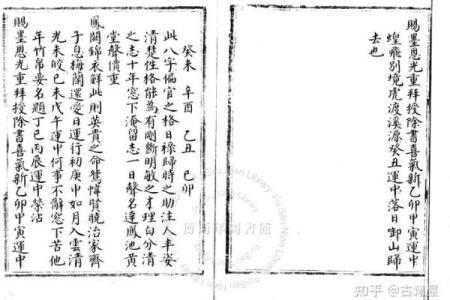 賜墨恩光重拜授除書喜氣新乙卯甲寅運中
蝗飛別境虎渡溪源癸丑運中落日啣山歸
去也
癸未 辛酉 乙丑 己卯
此八字偏官之格日祿歸時之助注人丰姿
清楚性格能為有剛斷明敏之才理白分清
之志十年窓下淹留志一日聲名達鳳池黃
堂聲價重
鳳闕錦衣鮮此則英貴之命鴛幃賢曉治家齊
子息梅蘭還愛日運行初庚申如月入雲清
光未皎己未戊午運中何事不辭窓下苦他
年竹帛要名題丁巳丙辰運中榮沾
賜墨恩光重拜授除書喜氣新乙卯甲寅運中
知乎 @古籍屋